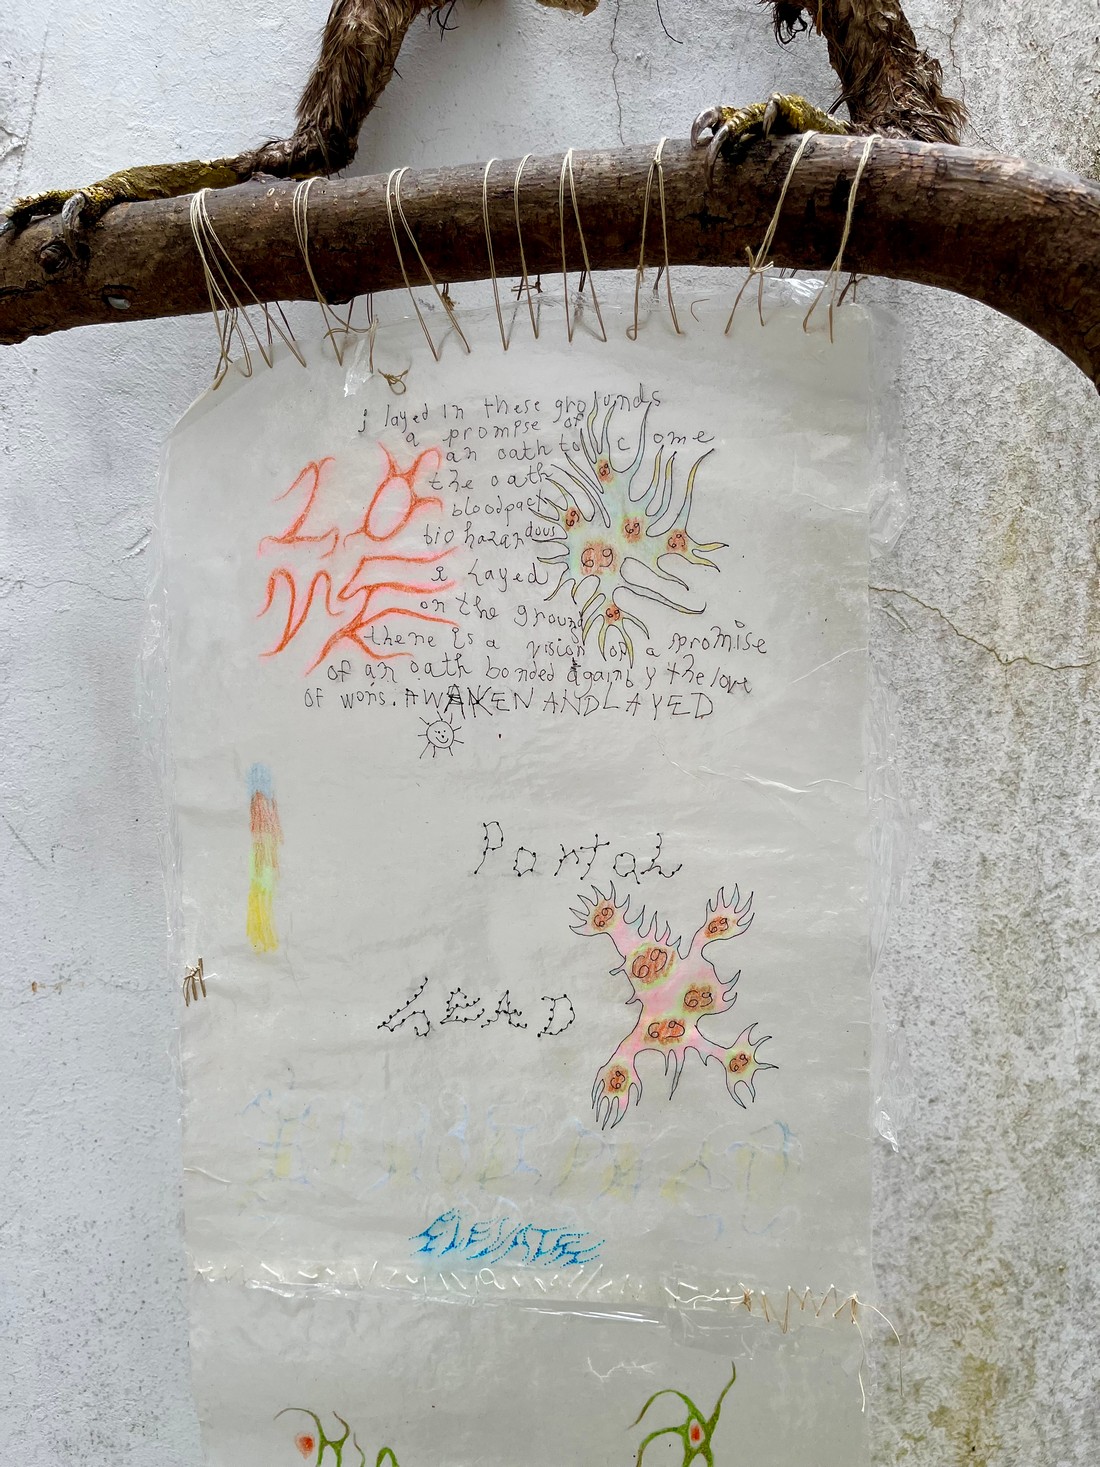 i layed in these grounds
a promise of
an oath to come
the oath
bloodpact
biohazardous
i layed
on the ground
there is a vision of a promise
of an oath bonded again by the love
of woris. AWAKEN AND LAYED
LO
VE
69
69
69
69
69
69
Portal
69
69
69
69
69
HEAD
69
69
ELEVATE